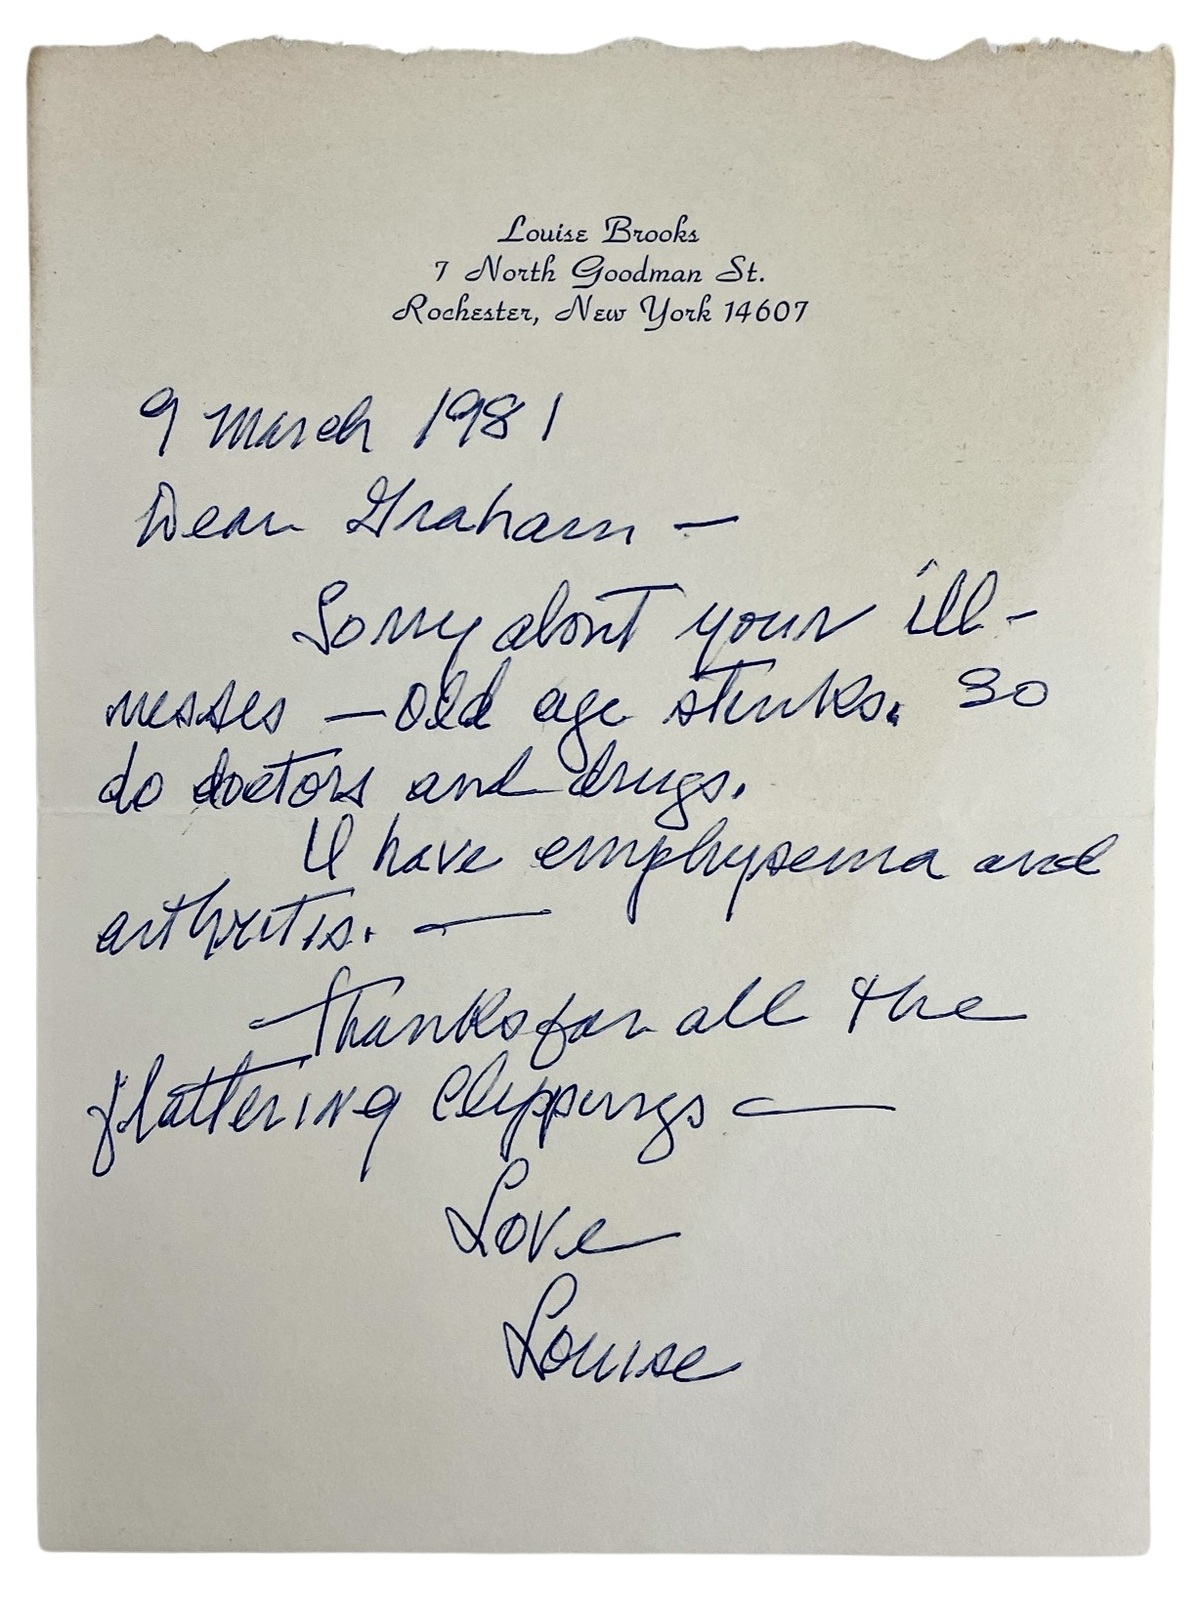 Louise Brooks
7 North Goodman St.
Rochester, New York 14607
9 March 1981
Dear Graham —
Sorry about your ill-
nesses — Old age stinks. So
do doctors and drugs.
I have emphysema and
arthritis. —
Thanks for all the
flattering clippings —
Love
Louise